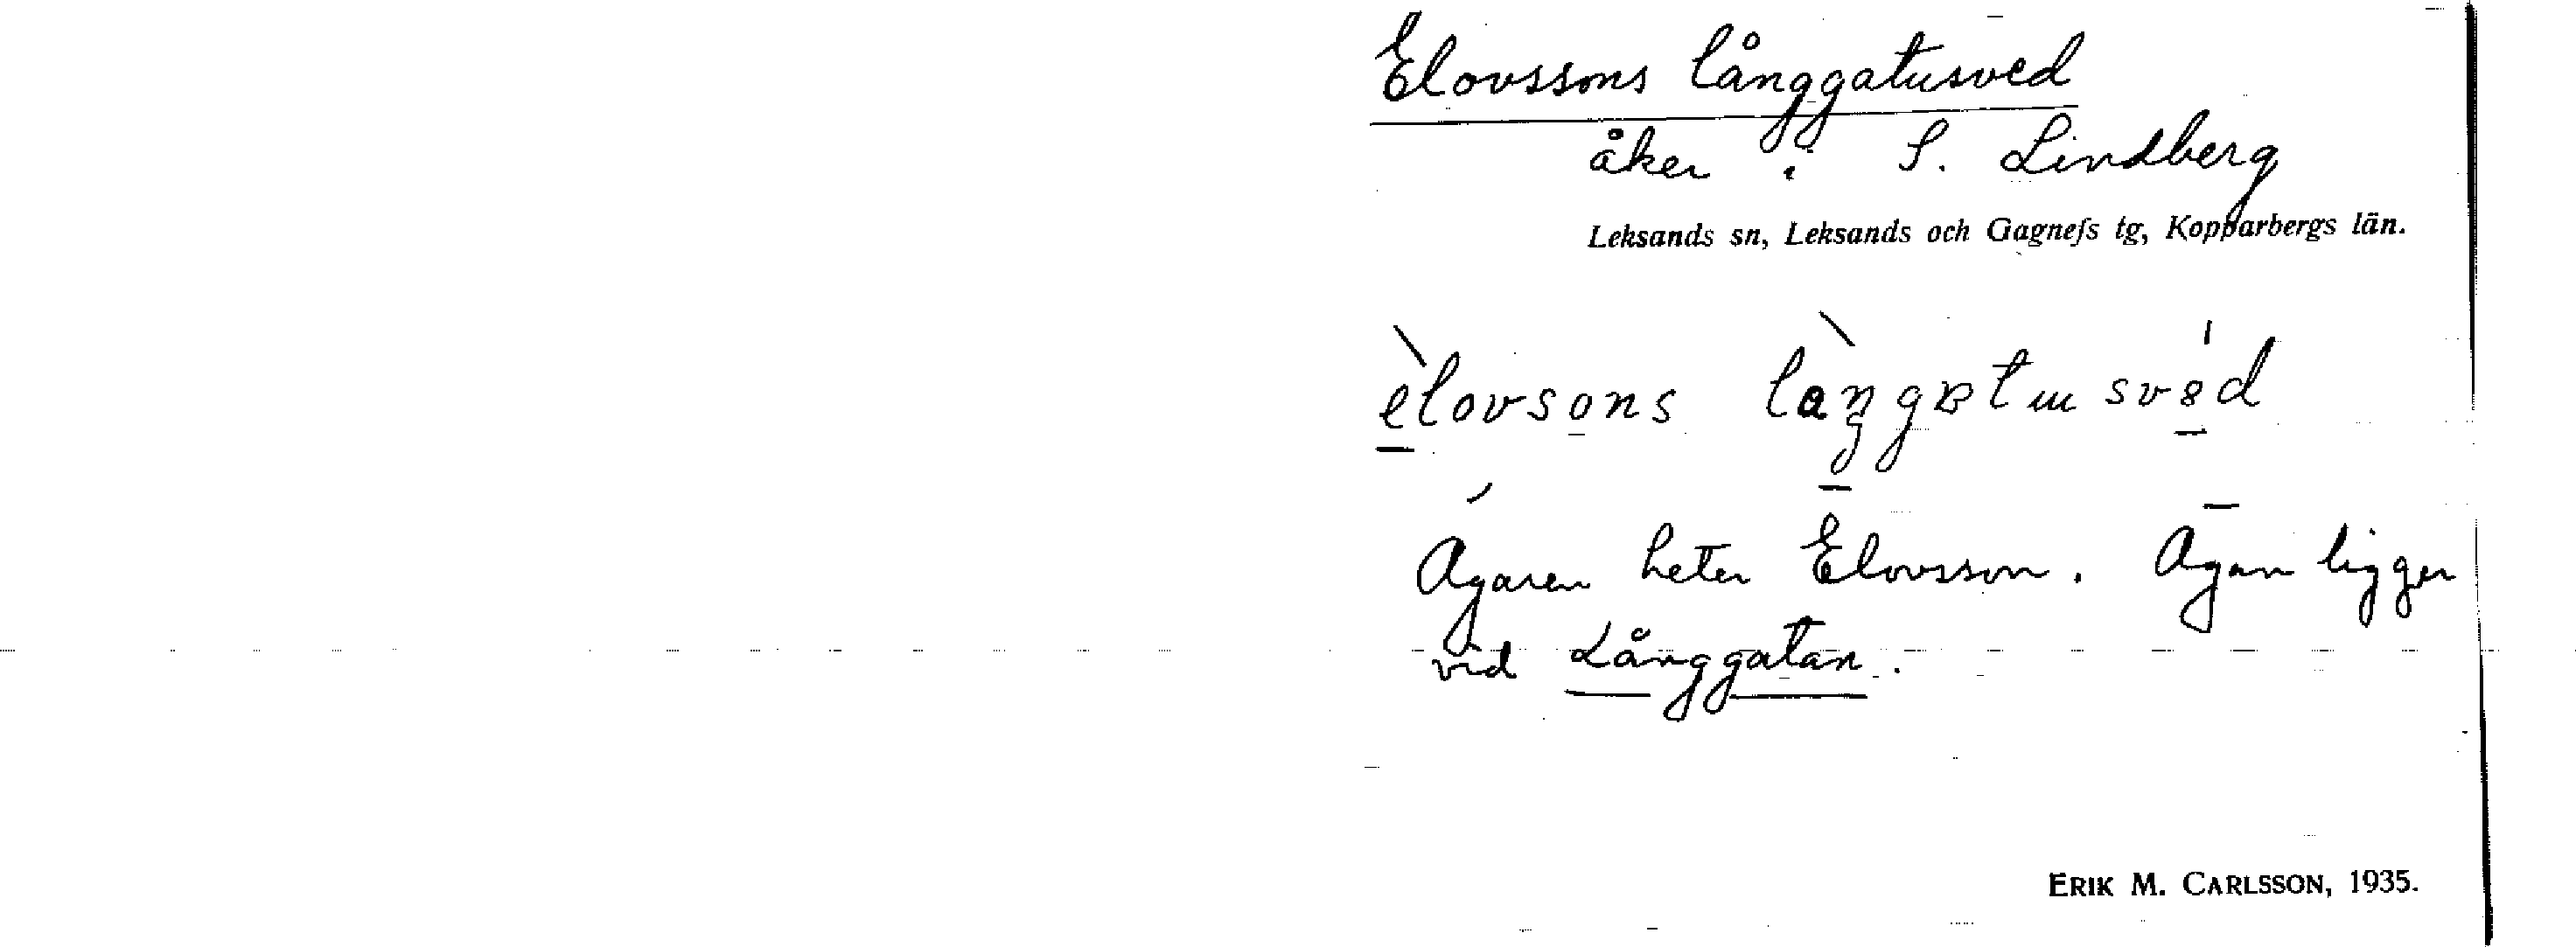 Elovssons långgatusved
åker i S. Lindberg
Leksands sn, Leksands och Gagnefs tg, Kopparbergs län.
èlovsons
Ägaren heter Elovsson. Ägan ligger
vid Långgatan.
ERIK M. CARLSSON, 1935.